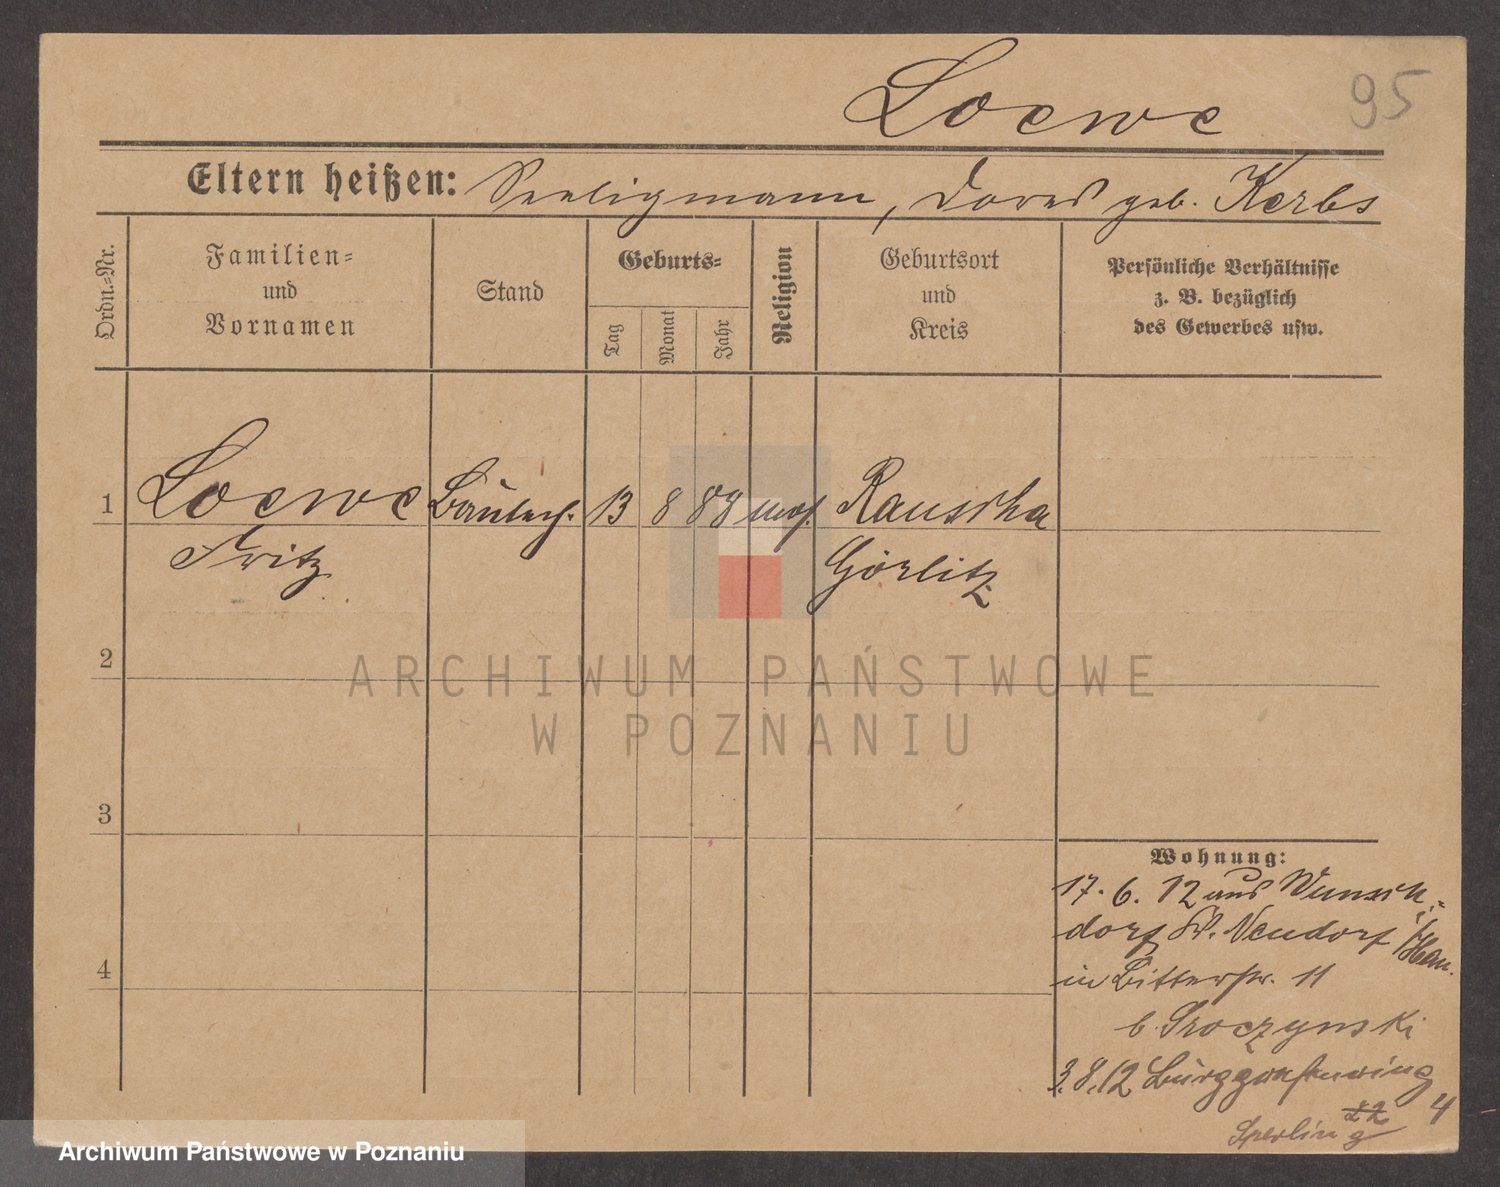 Loewe
95
Eltern heißen: Seeligmann, Dores geb. Kerbs
Ordn.-Nr.
Familien-
und
Vornamen
Stand
Geburts-
Tag
Monat
Jahr
Religion
Geburtsort
und
Kreis
Persönliche Verhältnisse
z. B. bezüglich
des Gewerbes usw.
1 Loewe 13 8 88 mos. Rauscha
Fritz Görlitz
2
3
4
ARCHIWUM PAŃSTWOWE
W POZNANIU
Wohnung:
17. 6. 12 aus Wunsch-
dorf Kr. Neudorf i/Han.
in Ritterstr. 11
b. Sroczynski
3. 8. 12 Burggrafenring
4
Sperling
Archiwum Państwowe w Poznaniu